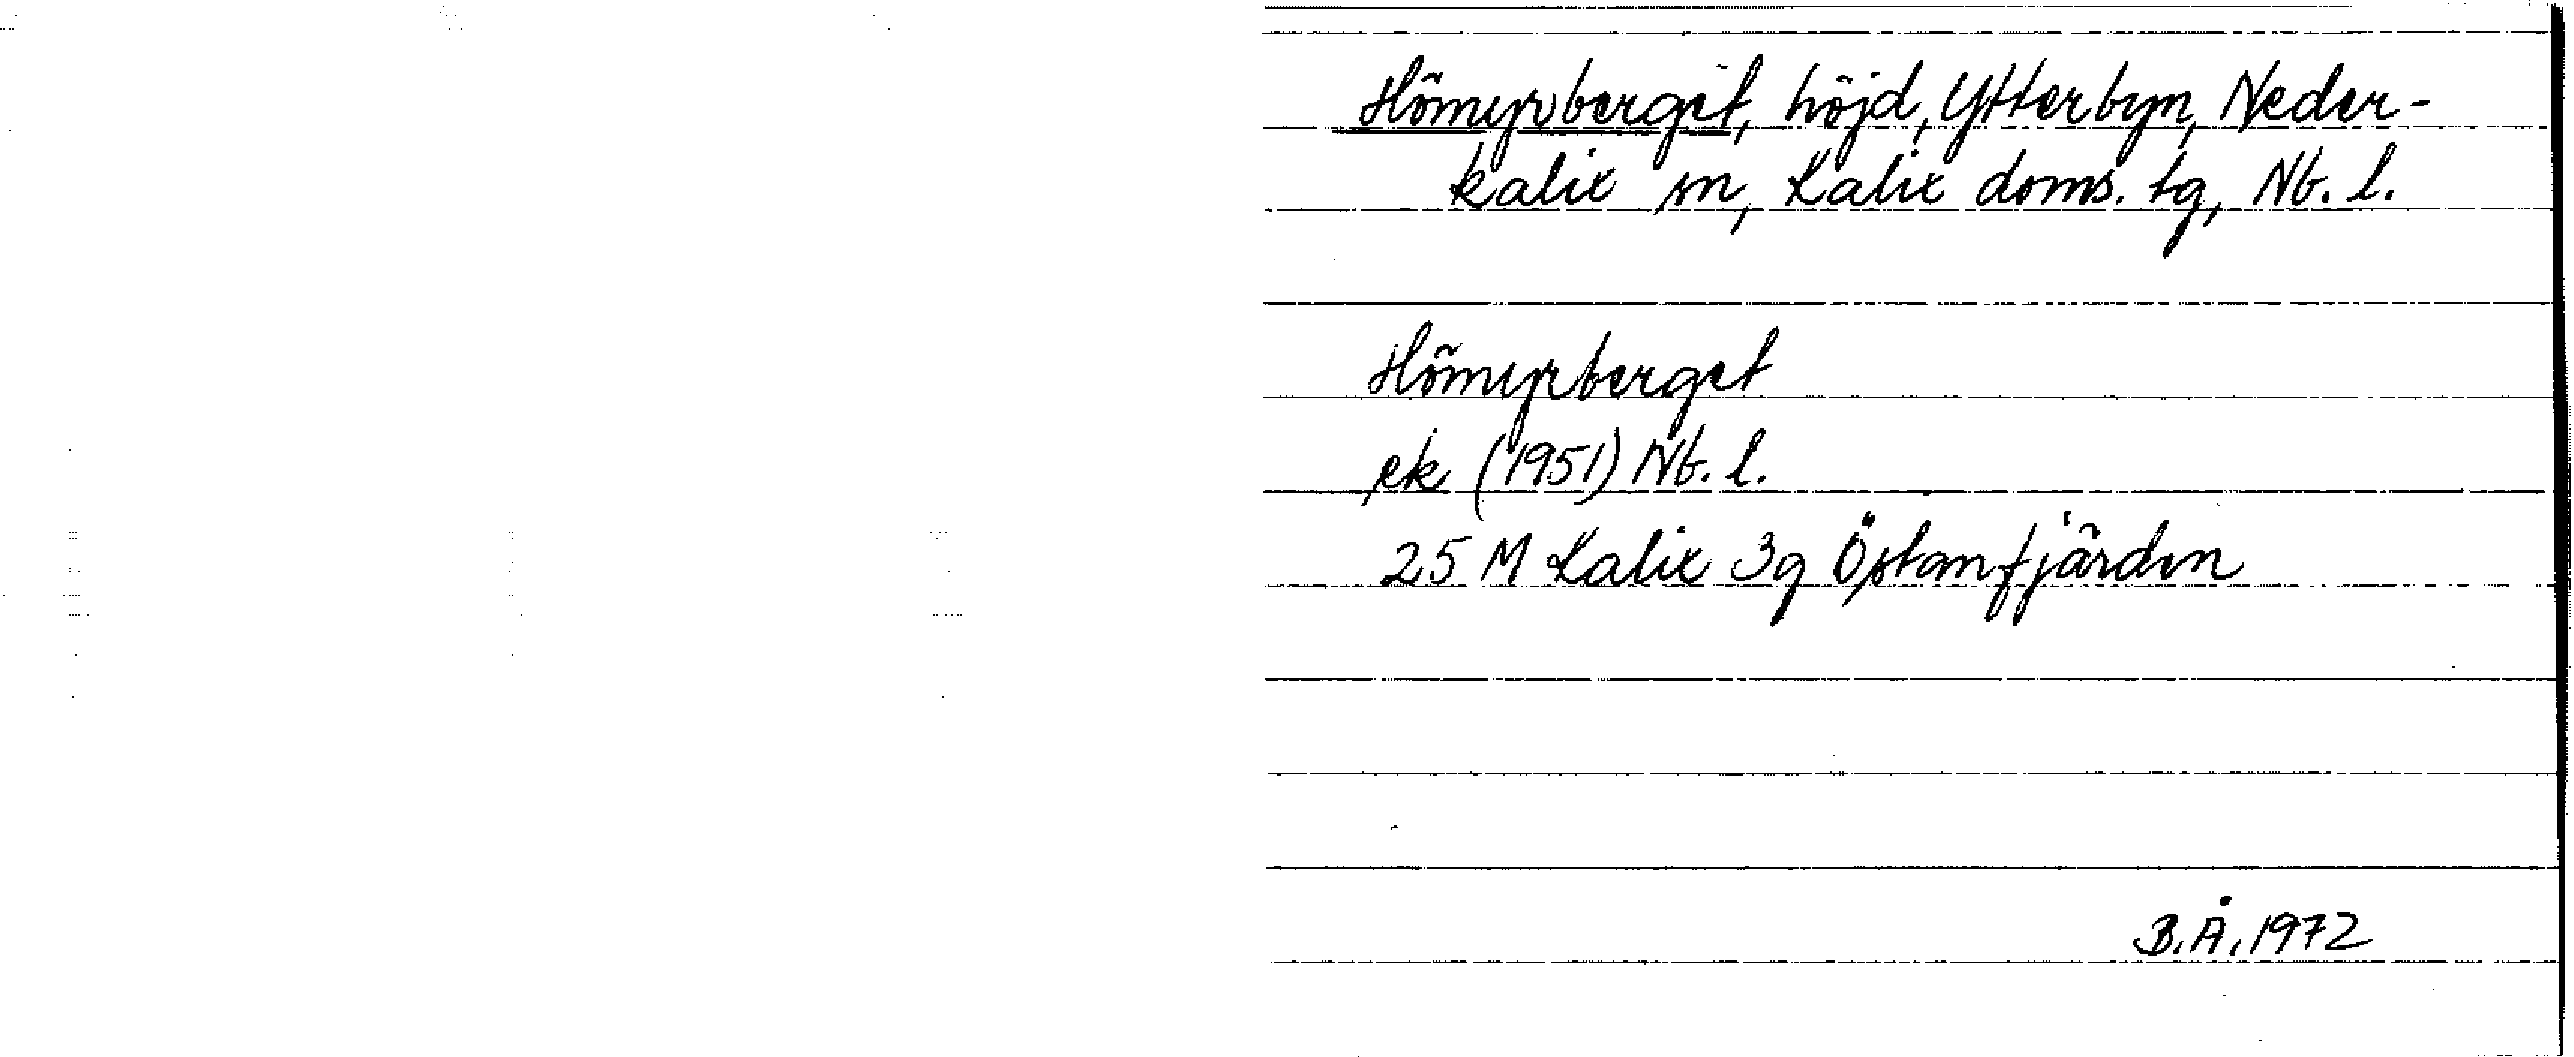 Hömyrberget, höjd, Ytterbyn, Neder-
kalix sn, Kalix doms. tg, Nb. l.
Hömyrberget
ek (1951) Nb. l.
25 M Kalix 3g Östanfjärden
B.Å. 1972